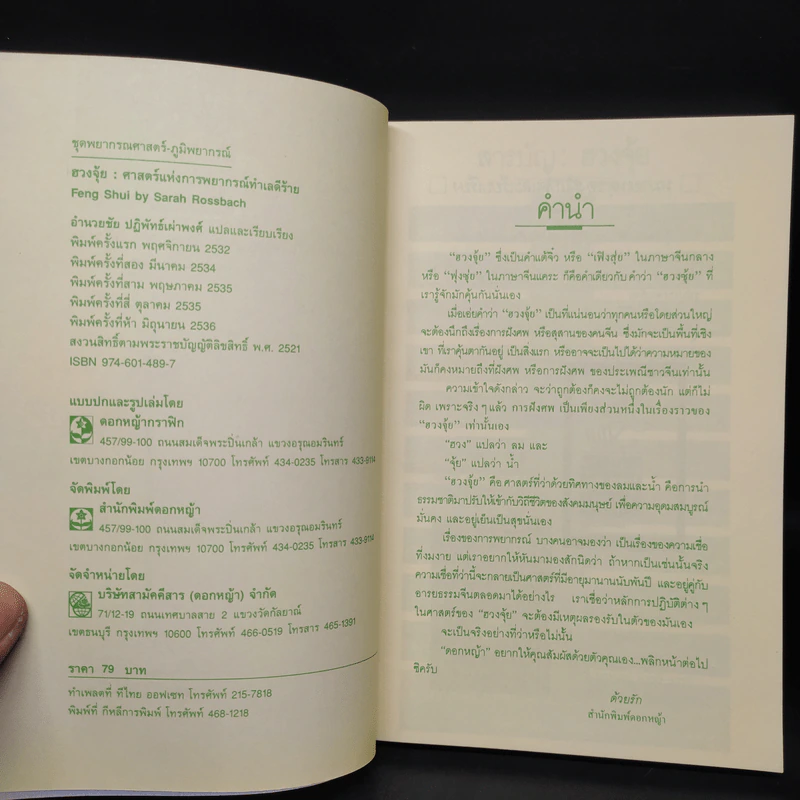 ชุดพยากรณศาสตร์-ภูมิพยากรณ์
ฮวงจุ้ย : ศาสตร์แห่งการพยากรณ์ทำเลดีร้าย
Feng Shui by Sarah Rossbach
อำนวยชัย ปฏิพัทธ์เผ่าพงศ์ แปลและเรียบเรียง
พิมพ์ครั้งแรก พฤศจิกายน 2532
พิมพ์ครั้งที่สอง มีนาคม 2534
พิมพ์ครั้งที่สาม พฤษภาคม 2535
พิมพ์ครั้งที่สี่ ตุลาคม 2535
พิมพ์ครั้งที่ห้า มิถุนายน 2536
สงวนสิทธิ์ตามพระราชบัญญัติลิขสิทธิ์ พ.ศ. 2521
ISBN 974-601-489-7
แบบปกและรูปเล่มโดย
ดอกหญ้ากราฟิก
457/99-100 ถนนสมเด็จพระปิ่นเกล้า แขวงอรุณอมรินทร์
เขตบางกอกน้อย กรุงเทพฯ 10700 โทรศัพท์ 434-0235 โทรสาร 433-9114
จัดพิมพ์โดย
สำนักพิมพ์ดอกหญ้า
457/99-100 ถนนสมเด็จพระปิ่นเกล้า แขวงอรุณอมรินทร์
เขตบางกอกน้อย กรุงเทพฯ 10700 โทรศัพท์ 434-0235 โทรสาร 433-9114
จัดจำหน่ายโดย
บริษัทสามัคคีสาร (ดอกหญ้า) จำกัด
71/12-19 ถนนเทศบาลสาย 2 แขวงวัดกัลยาณ์
เขตธนบุรี กรุงเทพฯ 10600 โทรศัพท์ 466-0519 โทรสาร 465-1391
ราคา 79 บาท
ทำเพลตที่ ทีไทย ออฟเซท โทรศัพท์ 215-7818
พิมพ์ที่ กิหลีการพิมพ์ โทรศัพท์ 468-1218
คำนำ
“ฮวงจุ้ย” ซึ่งเป็นคำแต้จิ๋ว หรือ “เฟิงสุ่ย” ในภาษาจีนกลาง
หรือ “ฟุ่งซุ่ย” ในภาษาจีนแคระ ก็คือคำเดียวกับคำว่า “ฮวงซุ้ย” ที่
เรารู้จักมักคุ้นกันนั่นเอง
เมื่อเอ่ยคำว่า “ฮวงจุ้ย” เป็นที่แน่นอนว่าทุกคนหรือโดยส่วนใหญ่
จะต้องนึกถึงเรื่องการฝังศพ หรือสุสานของคนจีน ซึ่งมักจะเป็นพื้นที่เชิง
เขา ที่เราคุ้นตากันอยู่ เป็นสิ่งแรก หรืออาจจะเป็นไปได้ว่าความหมายของ
มันก็คงหมายถึงที่ฝังศพ หรือการฝังศพ ของประเพณีชาวจีนเท่านั้น
ความเข้าใจดังกล่าว จะว่าถูกต้องก็คงจะไม่ถูกต้องนัก แต่ก็ไม่
ผิด เพราะจริง ๆ แล้ว การฝังศพ เป็นเพียงส่วนหนึ่งในเรื่องราวของ
“ฮวงจุ้ย” เท่านั้นเอง
“ฮวง” แปลว่า ลม และ
“จุ้ย” แปลว่า น้ำ
“ฮวงจุ้ย” คือ ศาสตร์ที่ว่าด้วยทิศทางของลมและน้ำ คือการนำ
ธรรมชาติมาปรับให้เข้ากับวิถีชีวิตของสังคมมนุษย์ เพื่อความอุดมสมบูรณ์
มั่นคง และอยู่เย็นเป็นสุขนั่นเอง
เรื่องของการพยากรณ์ บางคนอาจมองว่า เป็นเรื่องของความเชื่อ
ที่งมงาย แต่เราอยากให้หันมามองสักนิดว่า ถ้าหากเป็นเช่นนั้นจริง
ความเชื่อที่ว่านี้จะกลายเป็นศาสตร์ที่มีอายุมานานนับพันปี และอยู่คู่กับ
อารยธรรมจีนตลอดมาได้อย่างไร เราเชื่อว่าหลักการปฏิบัติต่าง ๆ
ในศาสตร์ของ “ฮวงจุ้ย” จะต้องมีเหตุผลรองรับในตัวของมันเอง
จะเป็นจริงอย่างที่ว่าหรือไม่นั้น
“ดอกหญ้า” อยากให้คุณสัมผัสด้วยตัวคุณเอง...พลิกหน้าต่อไป
ซิครับ
ด้วยรัก
สำนักพิมพ์ดอกหญ้า